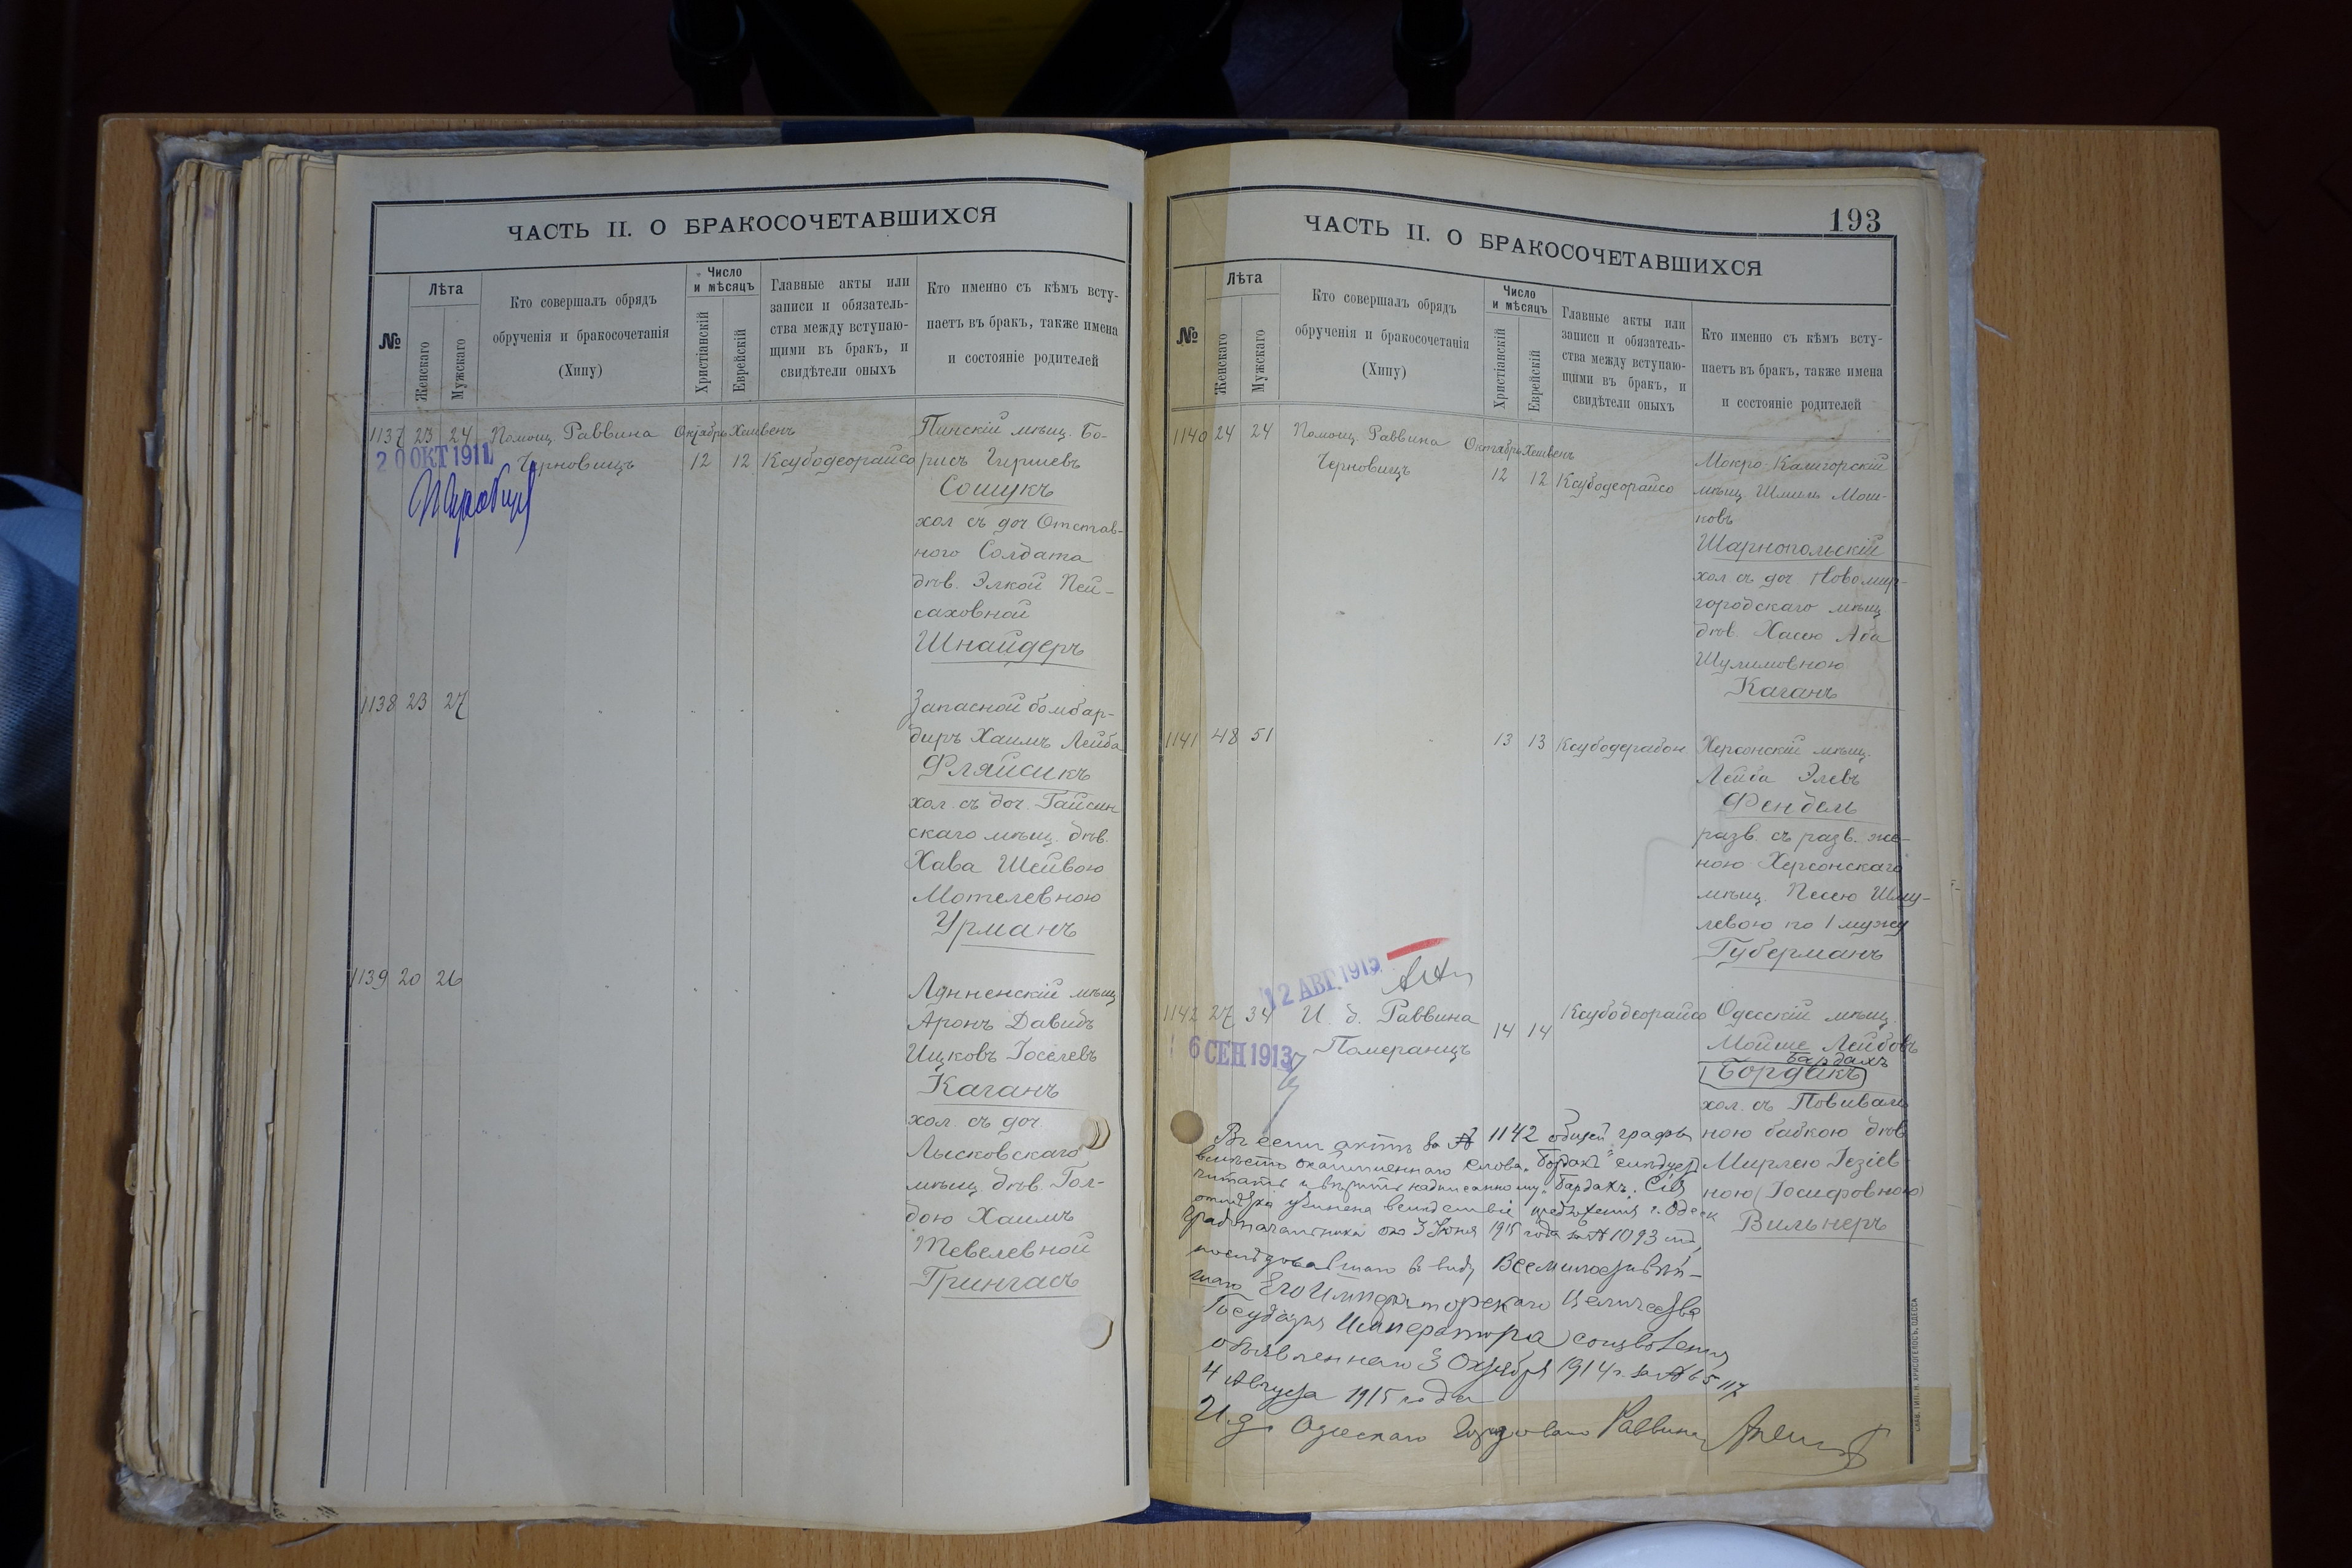 ЧАСТЬ II. О БРАКОСОЧЕТАВШИХСЯ
№
Лѣта
Женскаго
Мужскаго
Кто совершалъ обрядъ
обрученія и бракосочетанія
(Хипу)
Число
и мѣсяцъ
Христіанскій
Еврейскій
Главные акты или
записи и обязатель-
ства между вступаю-
щими въ бракъ, и
свидѣтели оныхъ
Кто именно съ кѣмъ всту-
паетъ въ бракъ, также имена
и состояніе родителей
1137 23 24 Помощ. Раввина
Черновицъ
Октябрь Хешвенъ
12 12 Ксубодеорайсо
20 ОКТ 1911
Пинскій мѣщ. Бо-
рисъ Гиршевъ
Сошукъ
хол съ доч Отстав-
ного Солдата
дѣв. Элкой Пей-
саховной
Шнайдеръ
1138 23 27
Запасной бомбар-
диръ Хаимъ Лейба
Фляйсикъ
хол. съ доч. Гайсин
скаго мѣщ. дѣв.
Хава Шейвою
Мотелевною
Урманъ
1139 20 26
Лунненскій мѣщ
Аронъ Давидъ
Ицковъ Іоселевъ
Каганъ
хол. съ доч
Лысковскаго
мѣщ. дѣв. Гол-
дою Хаимъ
Тевелевной
Грингасъ
193
ЧАСТЬ II. О БРАКОСОЧЕТАВШИХСЯ
№
Лѣта
Женскаго
Мужскаго
Кто совершалъ обрядъ
обрученія и бракосочетанія
(Хипу)
Число
и мѣсяцъ
Христіанскій
Еврейскій
Главные акты или
записи и обязатель-
ства между вступаю-
щими въ бракъ, и
свидѣтели оныхъ
Кто именно съ кѣмъ всту-
паетъ въ бракъ, также имена
и состояніе родителей
1140 24 24 Помощ. Раввина
Черновицъ
Октябрь Хешвенъ
12 12 Ксубодеорайсо
Мокро-Калигорскій
мѣщ. Шмиль Мош-
ковъ
Шарнопольскій
хол съ доч Новомир-
городскаго мѣщ
дѣв. Хасею Аба
Шулимовною
Каганъ
1141 48 51
13 13 Ксубодерабон
Херсонскій мѣщ.
Лейба Элевъ
Фендель
разв. съ разв. же-
ною Херсонскаго
мѣщ. Песею Шму-
левою по 1 мужу
Губерманъ
12 АВГ 1915
1142 27 34 И. д. Раввина
Померанцъ
14 14
Ксубодеорайсо
6 СЕН 1913
Одесскій мѣщ.
Мойше Лейбовъ
Бардахъ
Бордакъ
хол. съ Повиваль
ною бабкою дѣв
Мирлею Іезіев-
ною (Іосифовною)
Вильнеръ
Въ семъ актѣ за № 1142 общей графы
вмѣсто окаймленнаго слова „Бордакъ" слѣдуетъ
читать и вѣрить надписанному „Бардахъ". Сія
отмѣтка учинена вслѣдствіе предложенія г. Одесск
Градоначальника отъ 3 Іюня 1915 года за № 1093
послѣдовавшаго въ виду Всемилостивѣй-
шаго Его Императорскаго Величества
Государя Императора соизволенія
объявленнаго 3 Октября 1914 г. за № 65117
4 Августа 1915 года
И. д. Одесскаго Городового Раввина
СЛАВ. ТИП. Н. ХРИСОГЕЛОСЪ, ОДЕССА